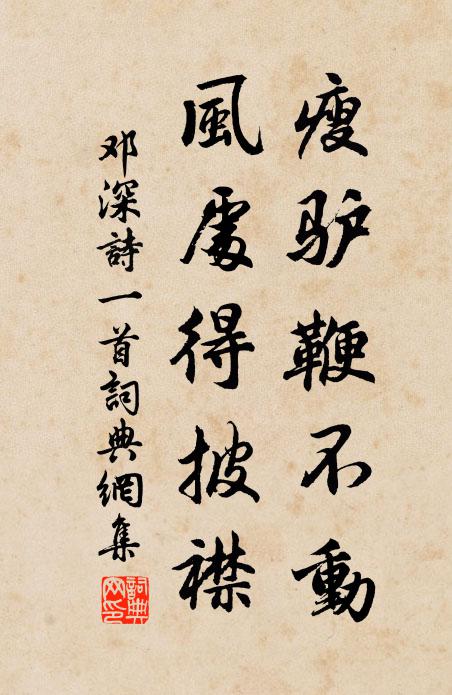 瘦驴鞭不動
風處得披襟
邓深詩一首詞典網集
詞典網印